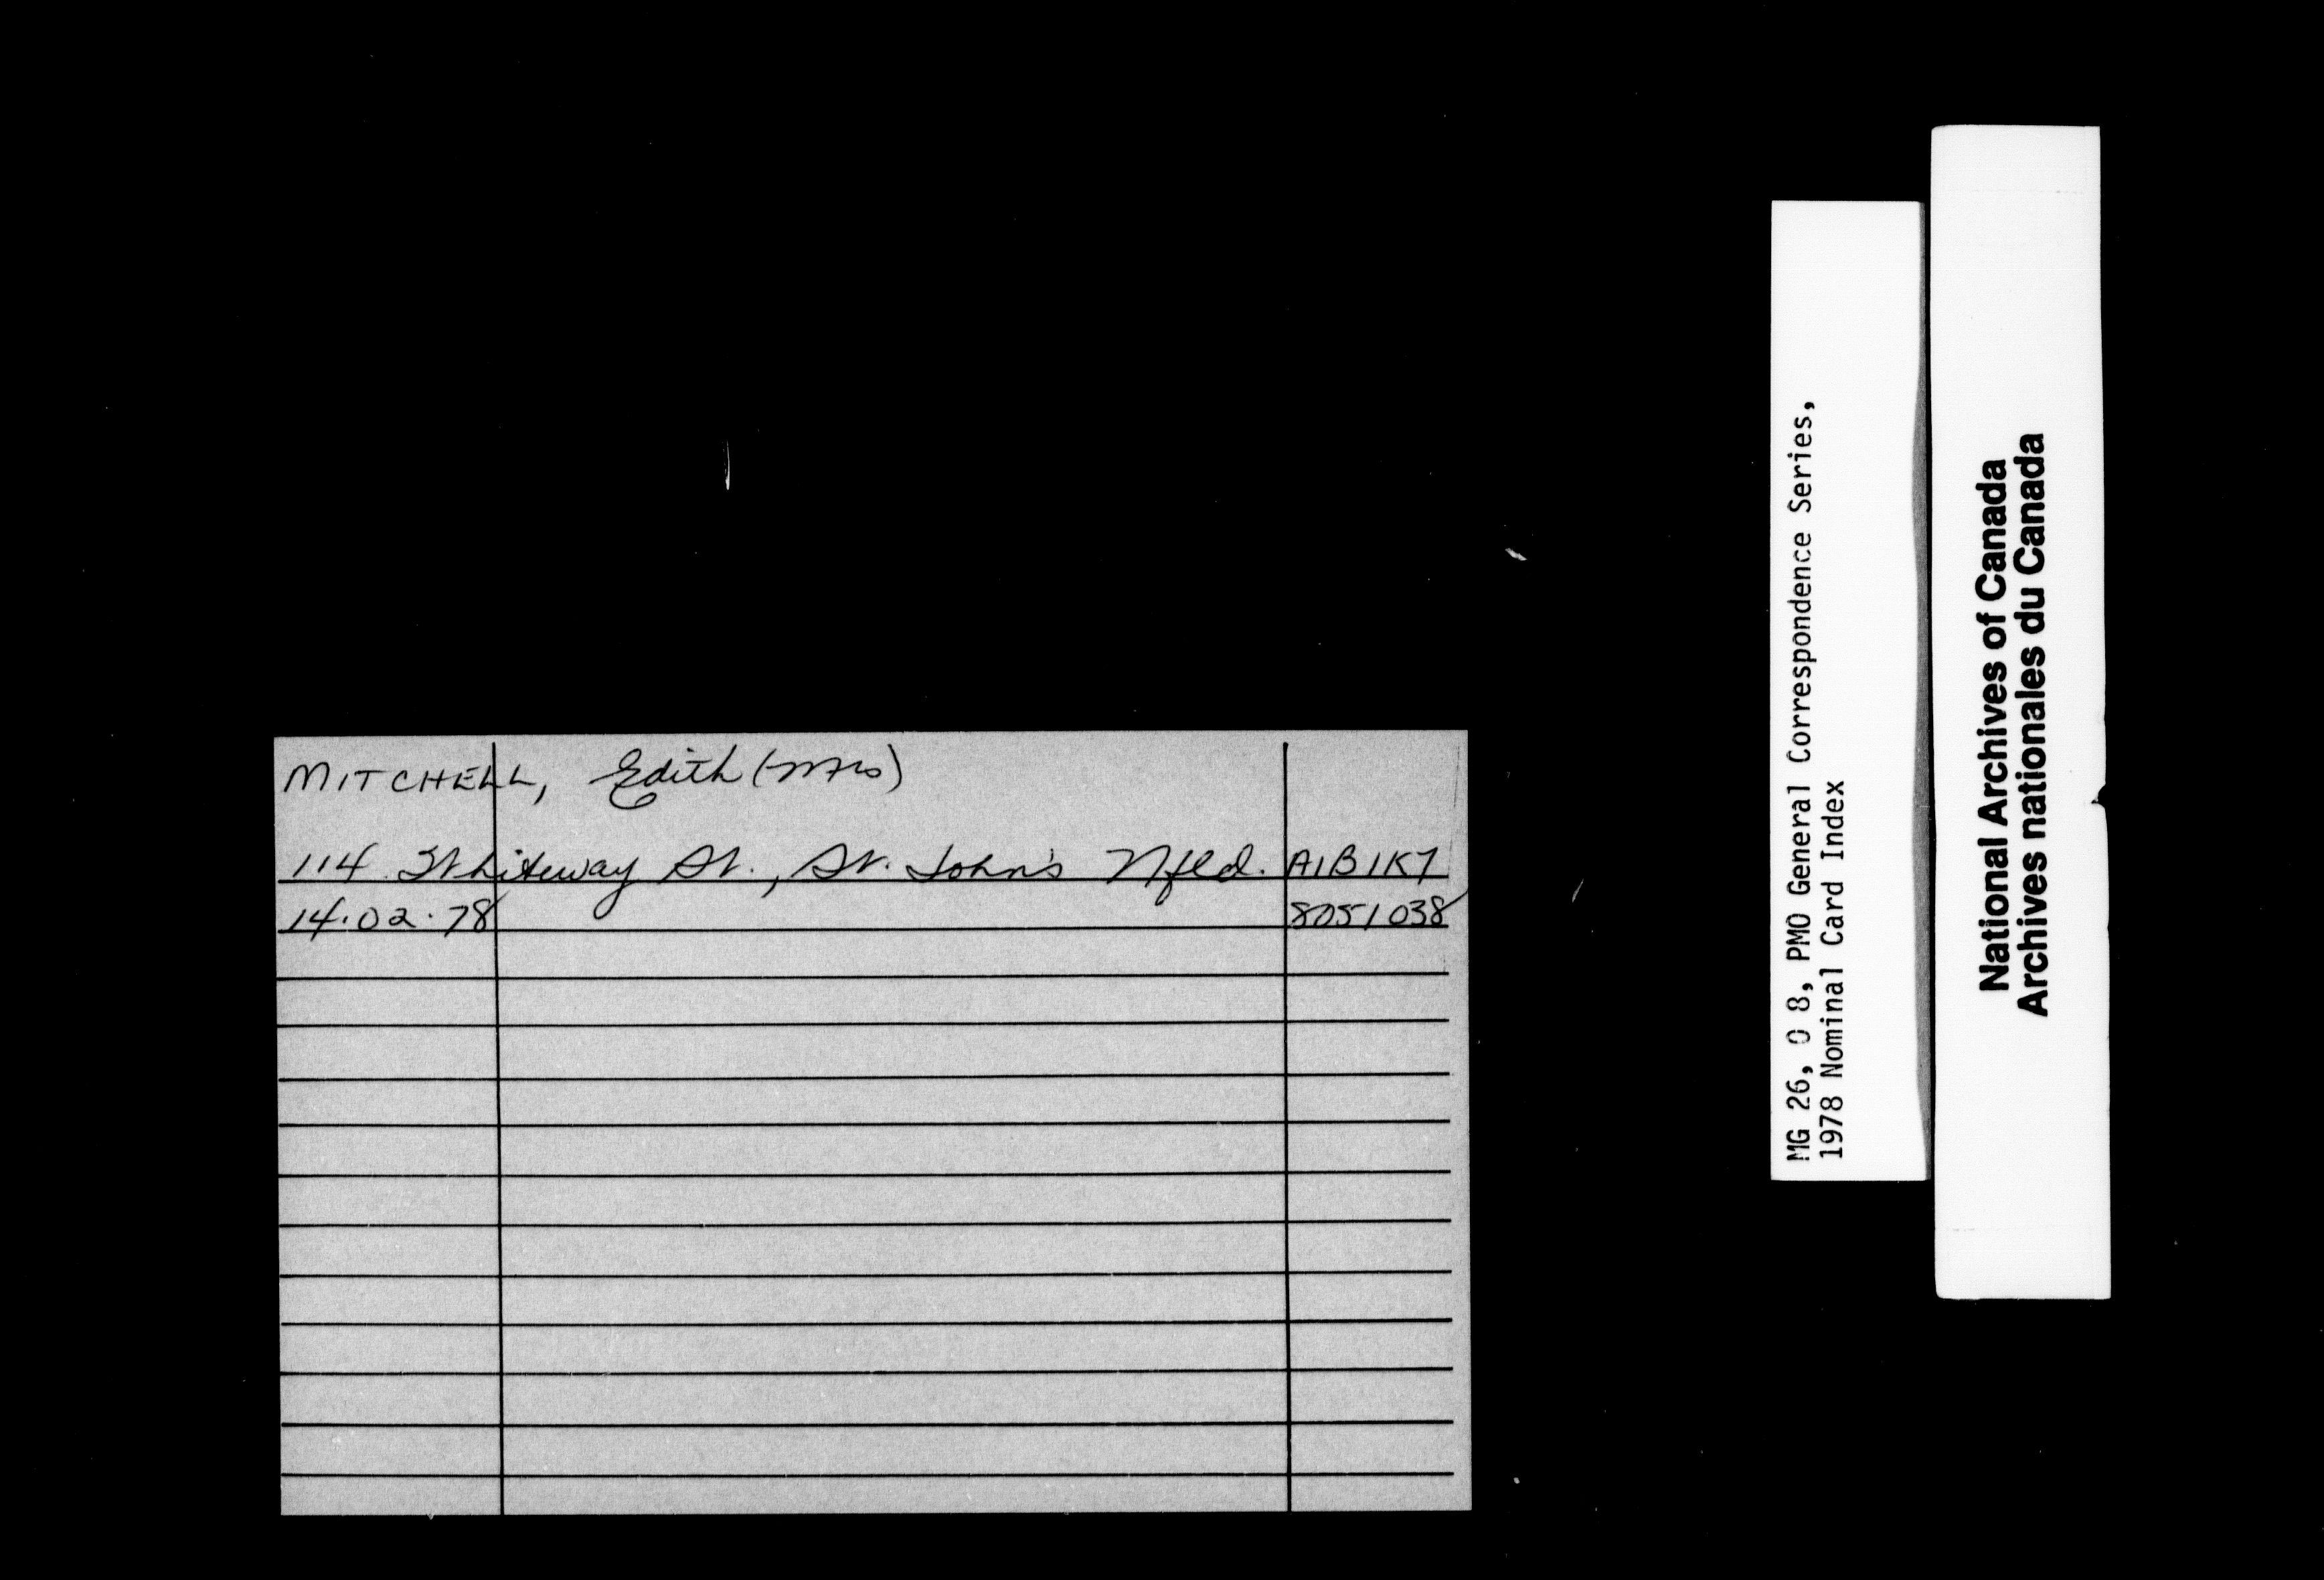 MITCHELL, Edith (Mrs)
114 Whiteway St., St. John's Nfld. A1B1K7
14.02.78 8051038
MG 26, O 8, PMO General Correspondence Series,
1978 Nominal Card Index
National Archives of Canada
Archives nationales du Canada